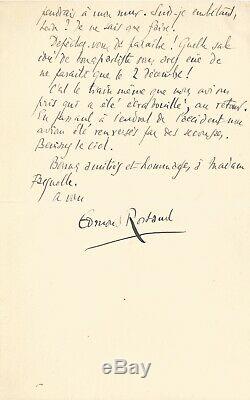 pendrais à mon mur. Suis-je embêtant,
hein ? Je ne sais que faire.
Dépêchez-vous de paraître ! Quelle sale
idée de bonapartiste vous avez eue de
ne paraître que le 2 Décembre !
C'est le train même que nous avions
pris qui a été écrabouillé, au retour.
En passant à l'endroit de l'accident nous
avions été renversés par des secousses.
Bénissez le ciel.
Bonnes amitiés et hommages à Madame
Fasquelle.
à vous
Edmond Rostand